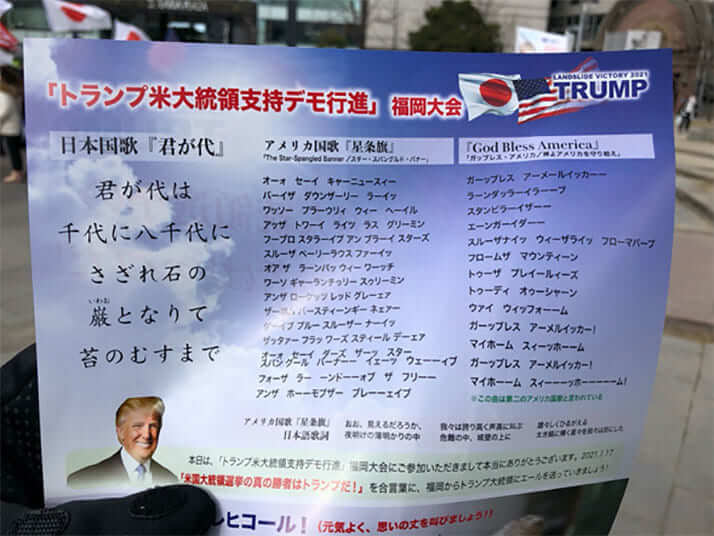 「トランプ米大統領支持デモ行進」 福岡大会
LANDSLIDE VICTORY 2021
TRUMP
日本国歌『君が代』
君が代は
千代に八千代に
さざれ石の
いわお
巌となりて
苔のむすまで
アメリカ国歌『星条旗』
「The Star-Spangled Banner /スター・スパングルド・バナー」
オーォ セーイ キャーニュースィー
バーイザ ダウンザーリー ラーイッ
ワッソー プラーウリィ ウィー ヘーイル
アッザ トワーイ ライツ ラス グリーミン
フープロ スタラーイプ アン ブラーイ スターズ
スルーザ ペーリーラウス ファーイッ
オアザ ラーンパッ ウィー ワーッチ
ワーソ ギャーランチィリー スゥリーミン
アンザ ローケッツ レッド グレーェア
バースティーンギ ネェアー
ブルー スルーザー ナーイッ
ザッタァー フラッ ワーズ スティール デーェア
オーォ セーイ ダーズ ザーッ スター
スパングール バーナー イェーッ ウェーーーイブ
フォーザ ラー ーンドーーオブ ザ フリーー
アンザ ホーーモブザー ブレーーェイブ
『God Bless America』
「ガッブレス・アメリカ/神よアメリカを守り給え」
ガーッブレス アーメールイッカーー
ラーンダッラーイラーープ
スタンビラーイザーー
エーンガーイダーー
スルーザナイッ ウィーザライッ フローマバーブ
フロームザ マウンティーン
トゥーザ プレイールィーズ
トゥーディ オゥーシャーン
ウァイ ウィッフォーーム
ガーッブレス アーメルイッカー!
マイホーム スィーッホーーム
ガーッブレス アーメルイッカー!
マイホーム スィーーーッホーーーーーム!
※この曲は第二のアメリカ国歌と言われている
アメリカ国歌『星条旗』
日本語歌詞
おお、見えるだろうか、
夜明けの薄明かりの中
我々は誇り高く声高に叫ぶ
危難の中、城壁の上に
雄々しくひるがえる
本日は、「トランプ米大統領支持デモ行進」福岡大会にご参加いただきまして本当にありがとうございます。2021.1.17
「米国大統領選挙の真の勝者はトランプだ!」を合言葉に、福岡からトランプ大統領にエールを送っていきましょう!
レヒコール! (元気よく、思いの丈を叫びましょう!!